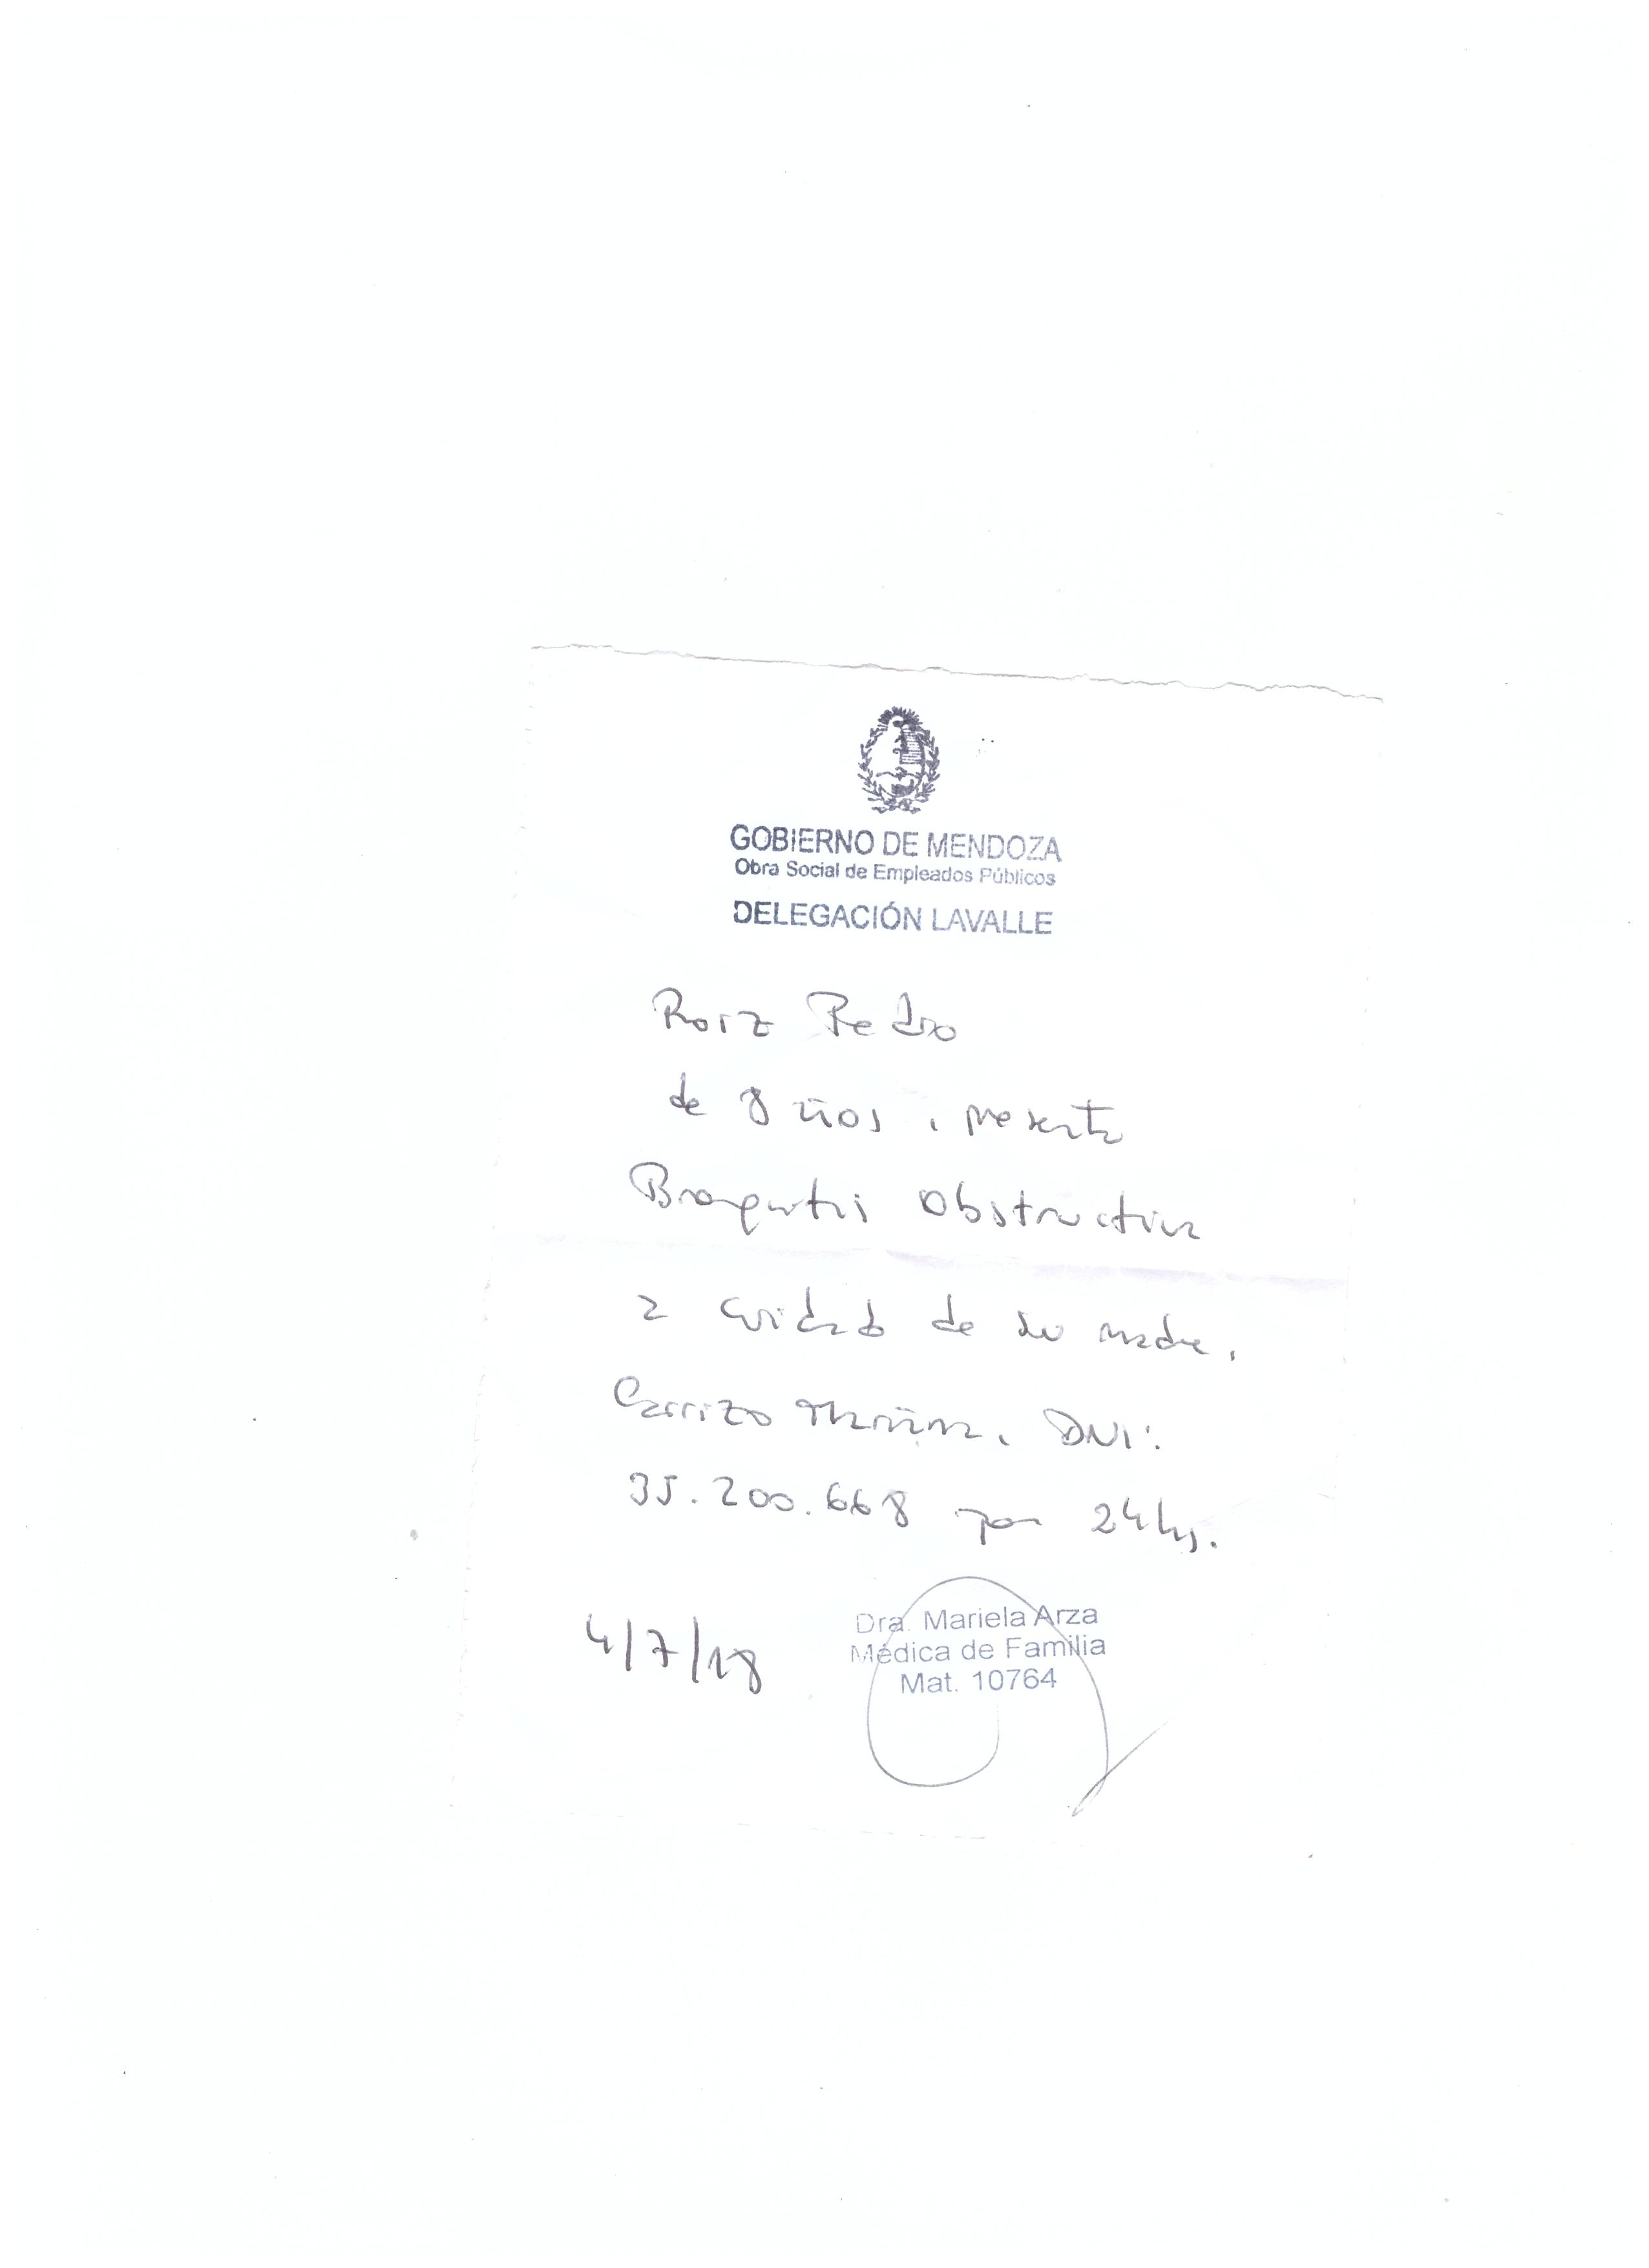 GOBIERNO DE MENDOZA
Obra Social de Empleados Públicos
DELEGACIÓN LAVALLE
Roiz Pedro
de 8 años, presenta
Bronquitis Obstructiva
a cuidado de su madre,
Carrizo DNI:
35.200.668 por 24hs.
4/7/18
Dra. Mariela Arza
Médica de Familia
Mat. 10764